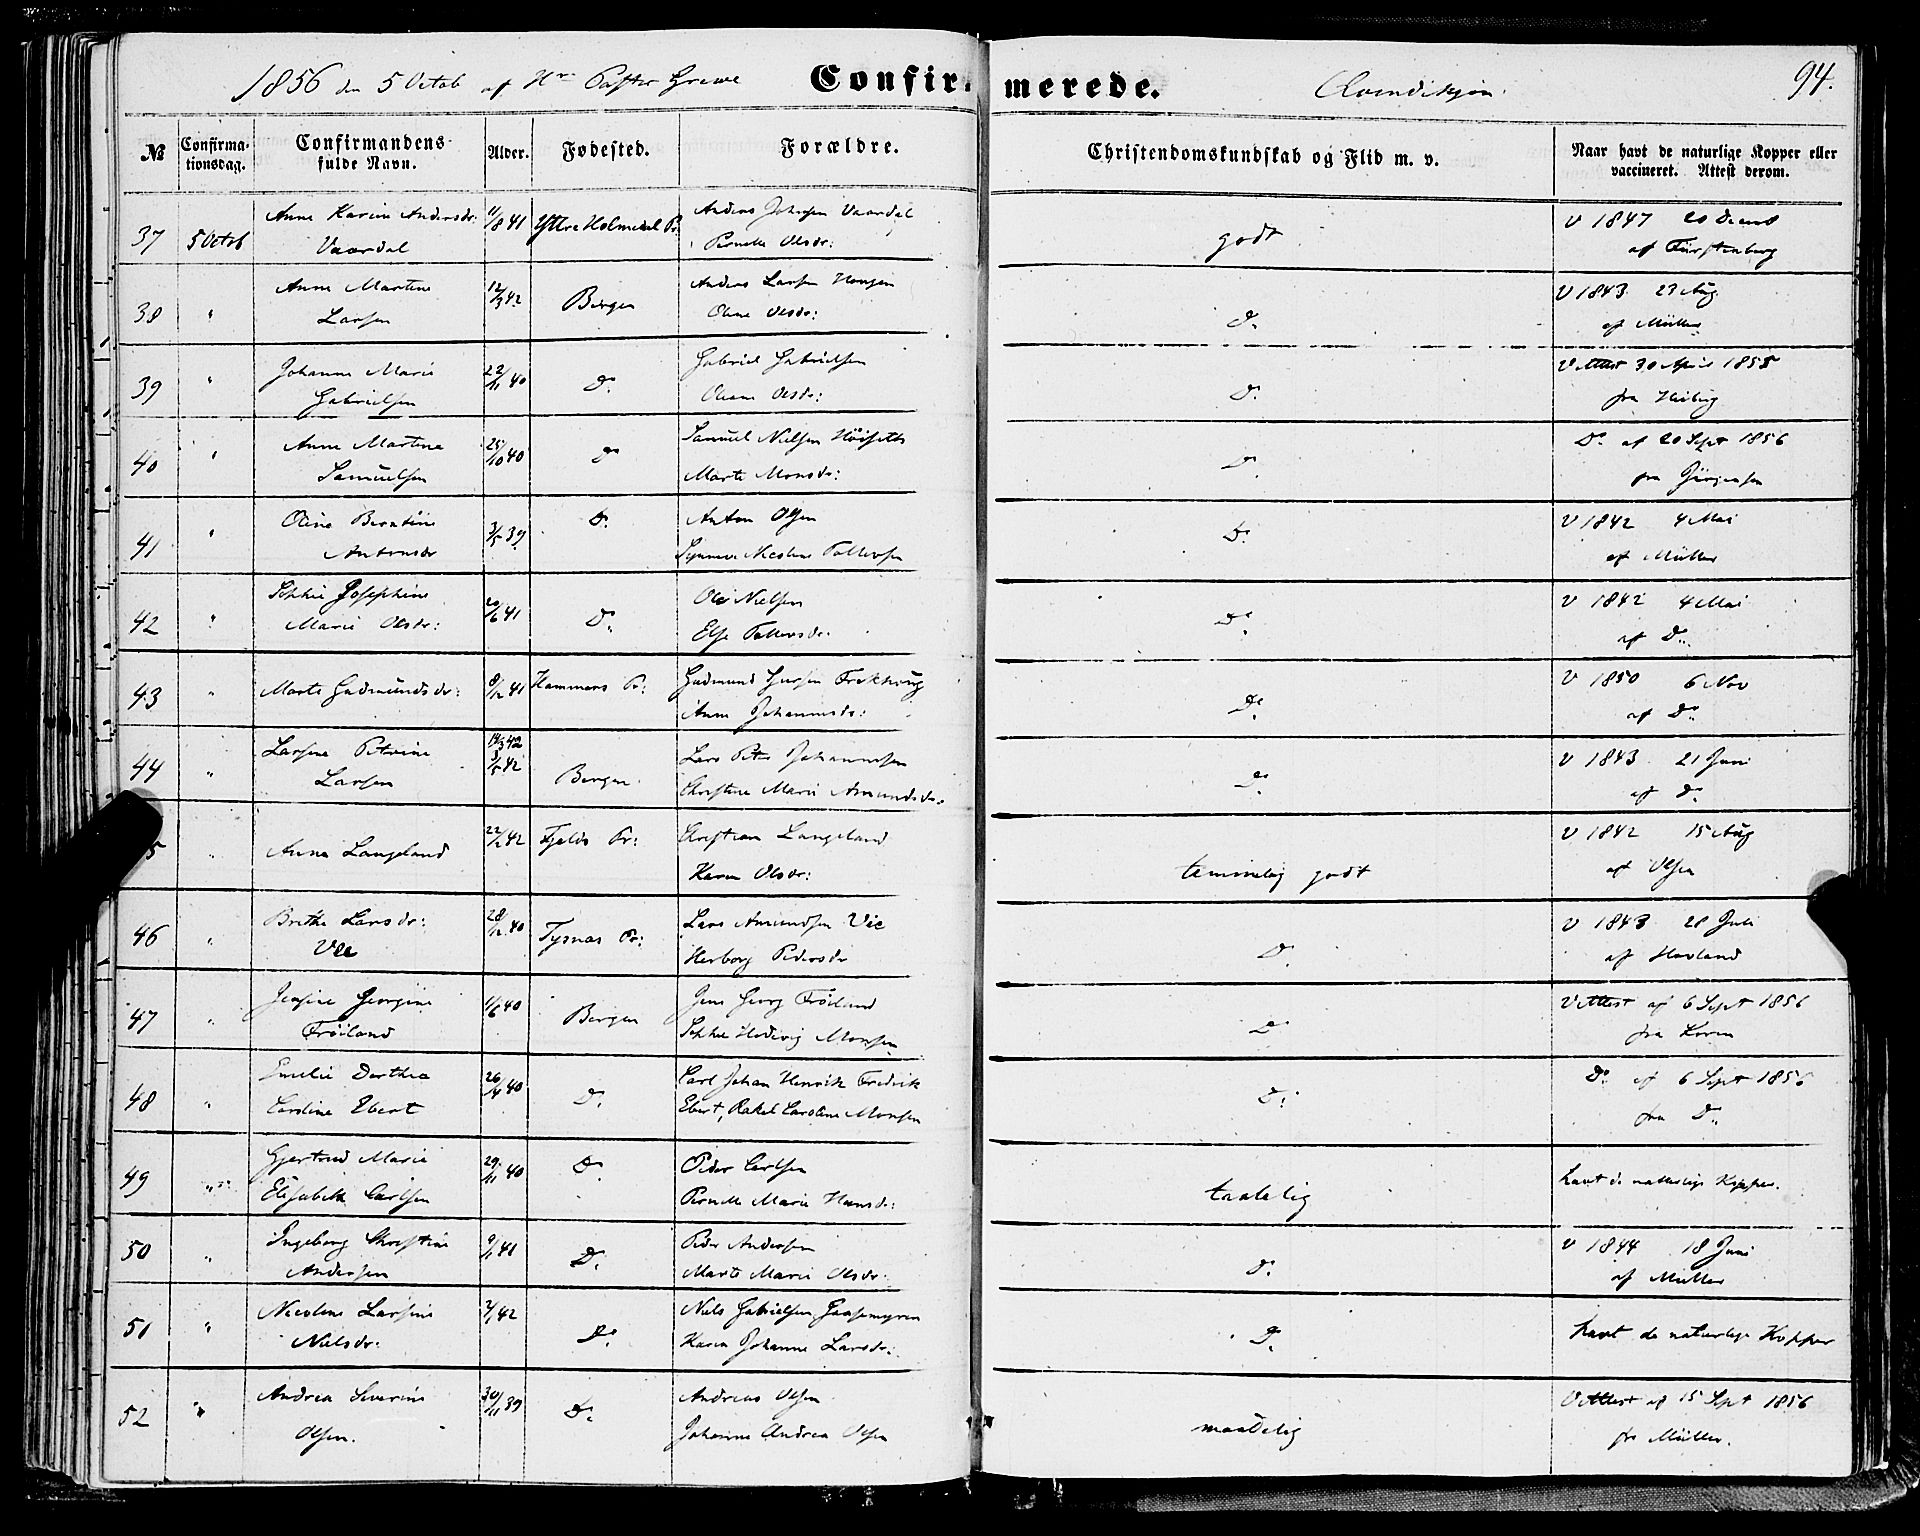 1856 den 5 Octob af Hr Pastor Grewe Confir- merede. Qvindekjøn. 94.
№ Confirma-tionsdag. Confirmandens fulde Navn. Alder. Fødested. Forældre. Christendomskundskab og Flid m. v. Naar havt de naturlige Kopper eller vaccineret. Attest derom.
37 5 Octob Anne Karine Andersdr: 11/8 41 Yttre Holmedal Pr: Anders Johnsen Vaardal godt V 1847 20 Decemb
Vaardal Pernelle Olsdr: af Fürstenberg
38 " Anne Martine 12/3 42 Bergen Anders Larsen Haugen Do V 1843 23 Aug.
Larsen Oline Olsdr: af Müller
39 " Johanne Marie 22/11 40 Do Gabriel Gabrielsen Do V Attest 30 April 1855
Gabrielsen Oleane Olsdr: fra Heiberg
40 " Anne Martine 25/10 40 Do Samuel Nielsen Höiseth Do Do af 20 Sept 1856
Samuelsen Marte Monsdr: fra Jürgensen
41 " Oline Berntine 3/5 39 Do Anton Olsen Do V 1842 4 Mai
Antonsdr Synneve Nicoline Tollevsen af Müller
42 " Sophie Josephine 20/6 41 Do Ole Nielsen Do V 1842 4 Mai
Marie Olsdr: Else Tollevsdr: af Do
43 " Marte Gudmundsdr: 8/12 41 Hammers Pr: Gudmund Frekhaug Do V 1850 6 Nov
Anne Johannesdr: af Do
44 " Larsine Petrine 14/3 42 3/5 42 Bergen Lars Peter Johannesen Do V 1843 21 Juni
Larsen Christine Marie Amundsdr. af Do
5 " Anna Langeland 22/2 42 Fjelds Pr: Christian Langeland temmelig godt V 1842 15 Aug
Karen Olsdr: af Olsen
46 " Brithe Larsdr: 28/12 40 Tysnæs Pr: Lars Amundsen Vie Do V 1843 28 Juli
Vie Herborg Pedersdr af Hovland
47 " Jensine Georgine 1/6 40 Bergen Jens Georg Fröiland Do V Attest af 6 Sept 1856
Fröiland Sophie Hedevig Monsen fra Koren
48 " Emilie Dorthea 26/4 40 Do Carl Johan Henrik Fredrik Do Do af 6 Sept 1856
Caroline Ebert Ebert, Rakel Caroline Monsen fra Do
49 " Gjertrud Marie 29/11 40 Do Peder Carlsen taalelig havt de naturlige Kopper.
Elisabeth Carlsen Pernelle Marie Hansdr:
50 " Ingeborg Christine 9/1 41 Do Peder Andersen Do V 1844 18 Juni
Andersen Marte Marie Olsdr: af Müller
51 " Nicoline Larsine 2/1 42 Do Niels Gabrielsen Gaasemyren Do havt de naturlige Kopper
Nielsdr: Karen Johanne Larsdr:
52 " Andrea Severine 30/11 39 Do Andreas Olsen maadelig V Attest af 15 Sept 1856
Olsen. Johanne Andrea Olsen fra Müller.